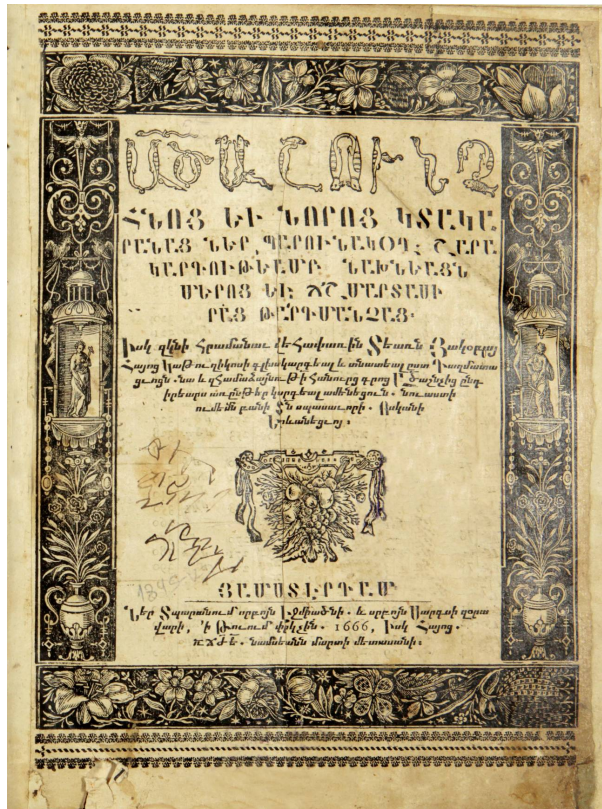 ԱԾԱՇՈՒՆՉ
ՀՆՈՑ ԵՒ ՆՈՐՈՑ ԿՏԱԿԱ
ՐԱՆԱՑ ՆԵՐ ՊԱՐՈՒՆԱԿՕՂ՝ ՇԱՐԱ
ԿԱՐԳՈՒԹԵԱՄԲ՝ ՆԱԽՆԵԱՑՆ
ՄԵՐՈՑ ԵՒ ՃՇՄԱՐՏԱՍԻ
ՐԱՑ ԹԱՐԳՄԱՆՉԱՑ.
Իսկ զկնի Հրամանաւ վեհափառին Տեառն Յակօբայ
Հայոց Կաթուղիկոսի գլխակարգեալ և տնատեալ ըստ
ցւոցն. նա և զհամաձայնութի համուրց գրոց Ածաշնչից ընդ
կարգեալ ամենեցուն. նուաստի
ումեմն բանի Տն սպասաւորի. Ոսկանի
Երևանեցւոյ։
1840
ՅԱՄՍՏԷՐԴԱՄ
Ներ Տպարանում սրբոյն Էջմիածնի. և սրբոյն Սարգսի զօրա
վարի, ՚ի Թուում փրկչին. 1666, Իսկ Հայոց.
ՌՃԺԵ. մարտի մետասանի։